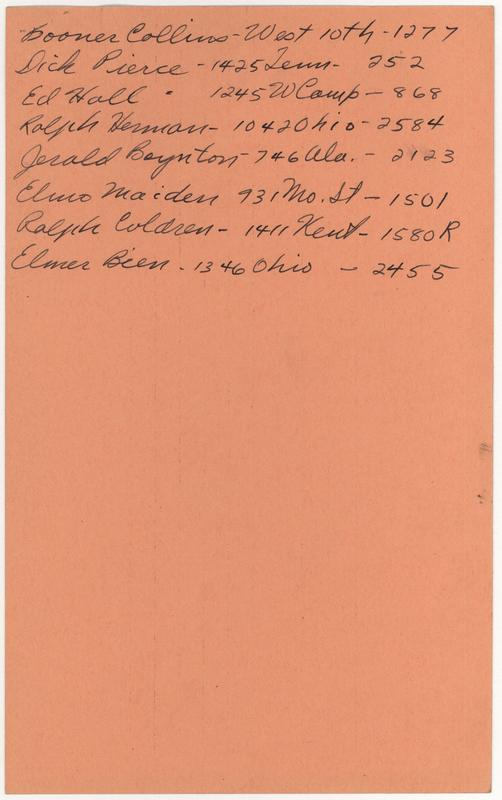 Booner Collins - West 10th - 1277
Dick Pierce - 1425 Tenn - 252
Ed Hall - 1245 W Camp - 868
Ralph Herman - 1042 Ohio - 2584
Jerald Boynton - 746 Ala. - 2123
Elmo Maiden 931 Mo. St - 1501
Ralph Coldren - 1411 Kent - 1580R
Elmer Bien - 1346 Ohio - 2455